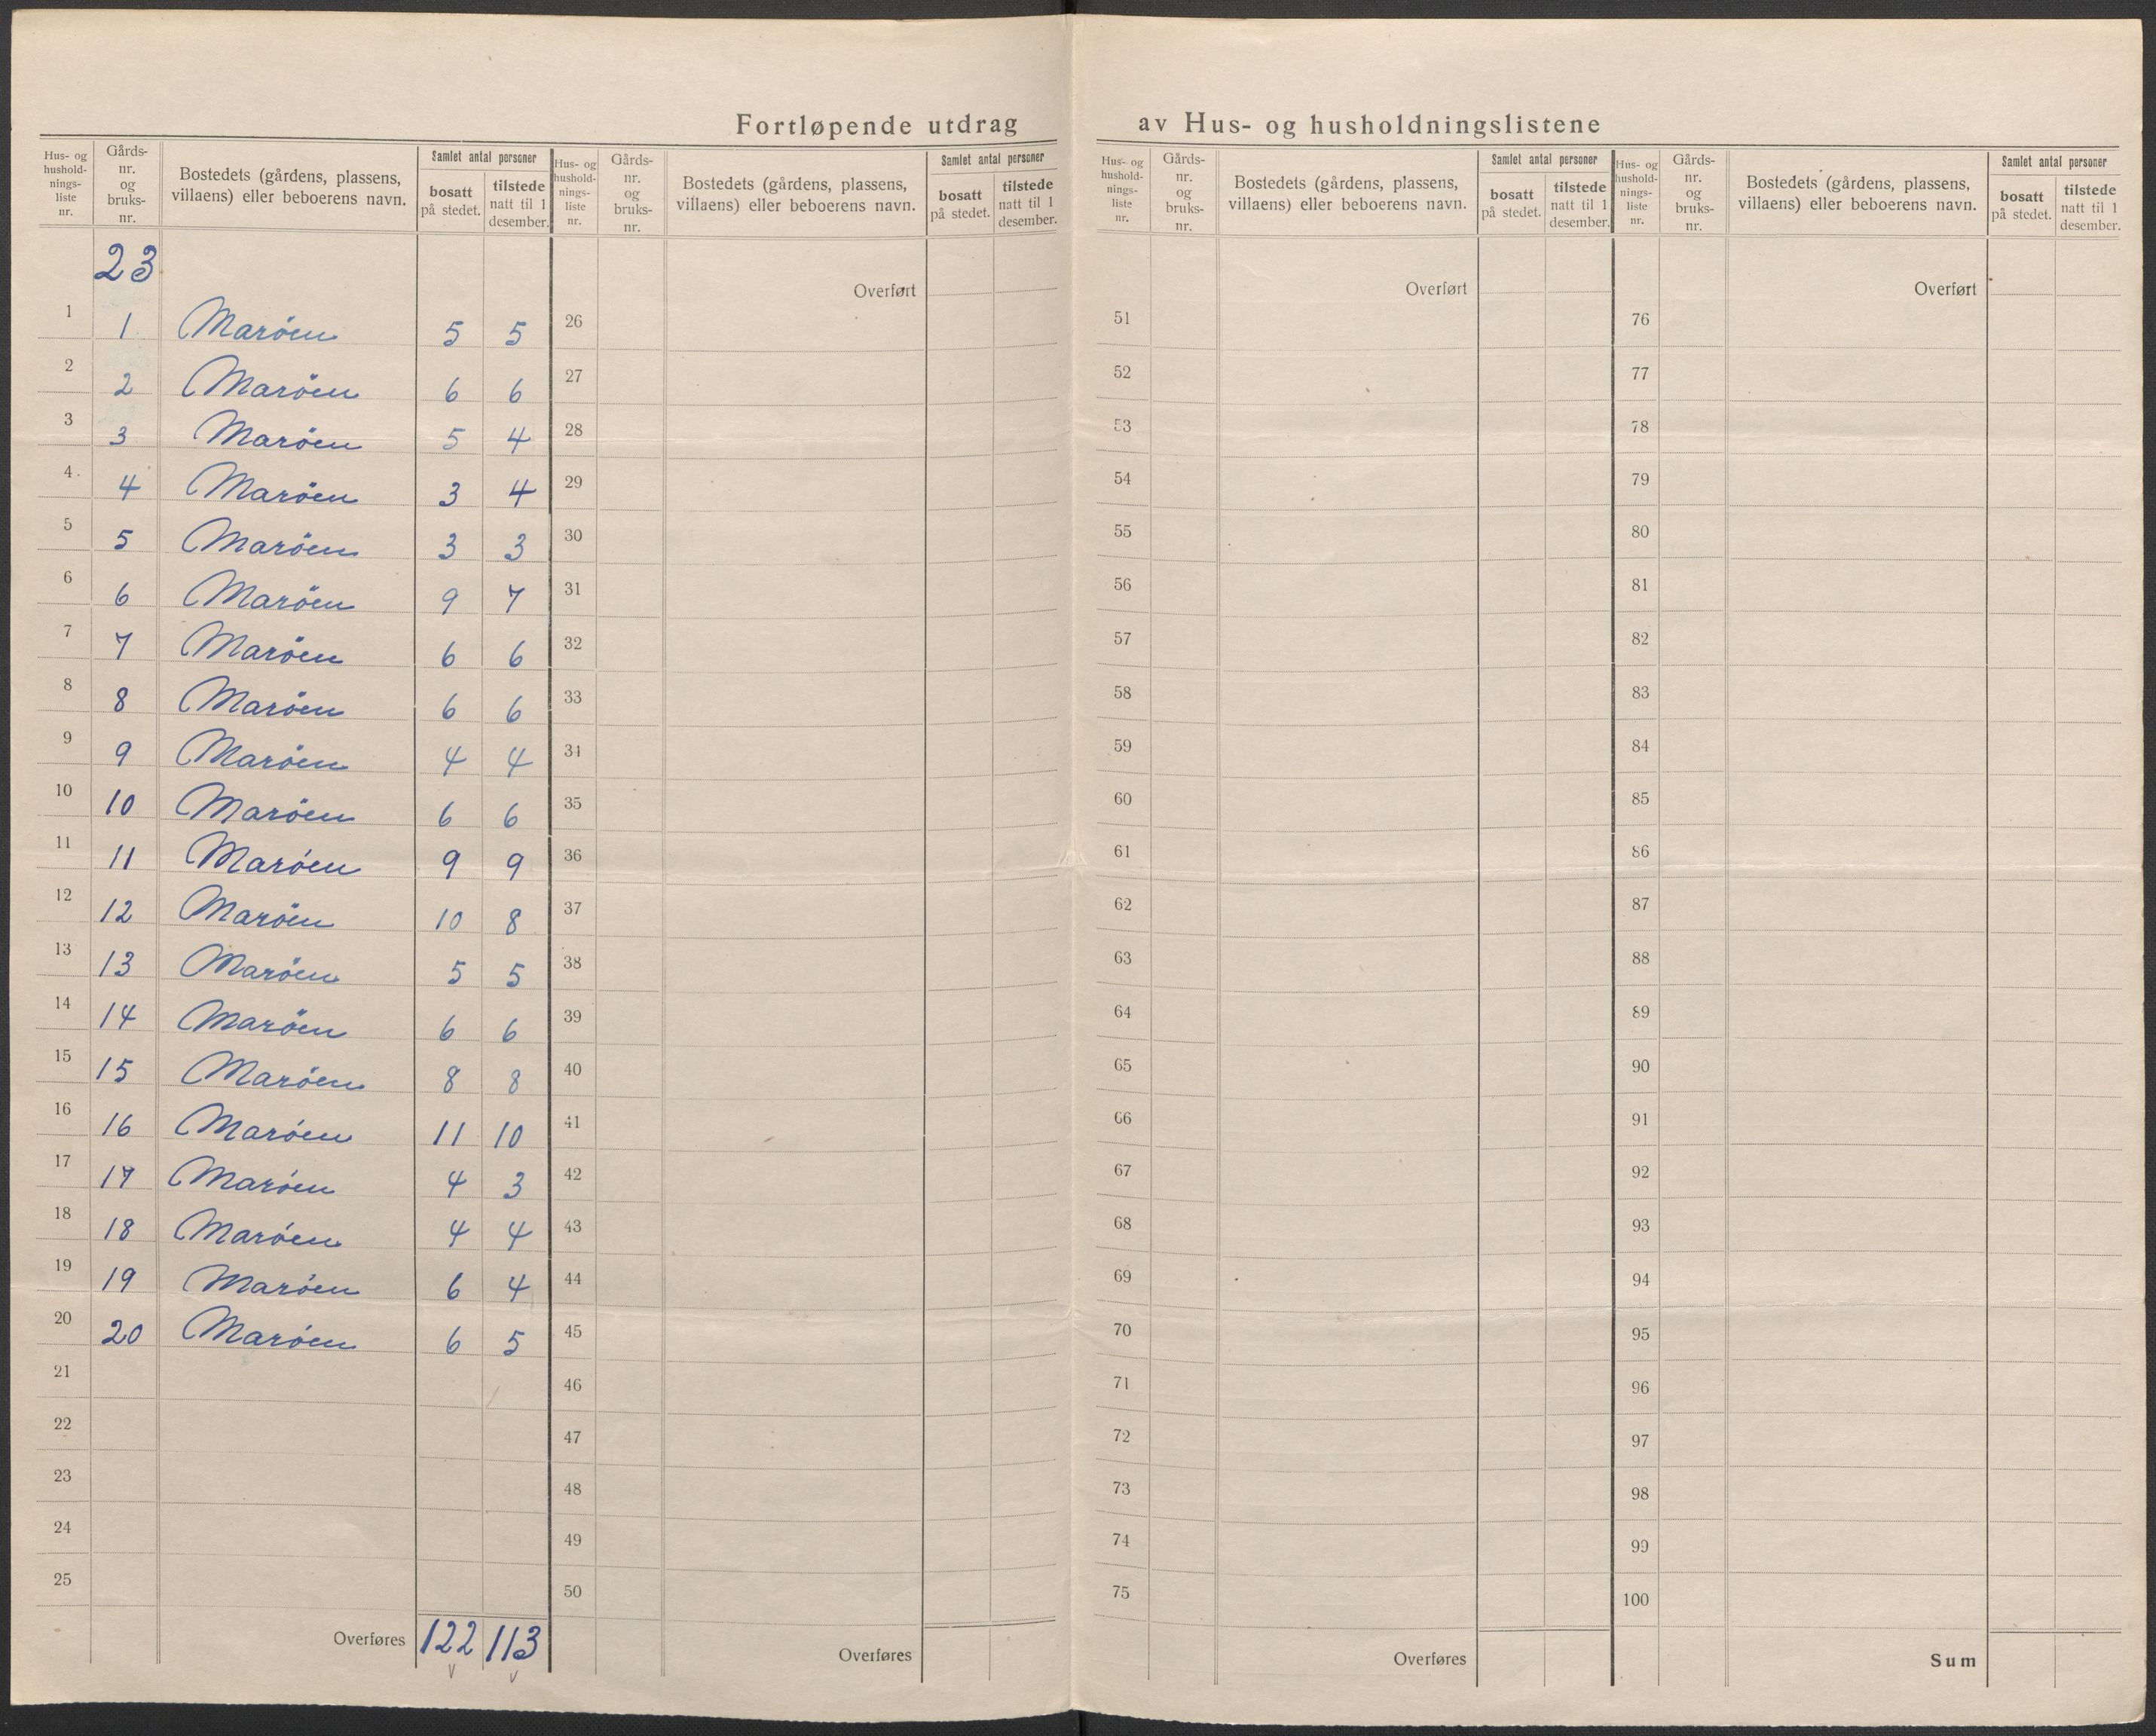 Fortløpende utdrag av Hus- og husholdningslistene
Hus- og hushold-nings-liste nr. Gårds-nr. og bruks-nr. Bostedets (gårdens, plassens, villaens) eller beboerens navn. Samlet antal personer bosatt på stedet. tilstede natt til 1 desember.
23
1 1 Maröen 5 5
2 2 Maröen 6 6
3 3 Maröen 5 4
4 4 Maröen 3 4
5 5 Maröen 3 3
6 6 Maröen 9 7
7 7 Maröen 6 6
8 8 Maröen 6 6
9 9 Maröen 4 4
10 10 Maröen 6 6
11 11 Maröen 9 9
12 12 Maröen 10 8
13 13 Maröen 5 5
14 14 Maröen 6 6
15 15 Maröen 8 8
16 16 Maröen 11 10
17 17 Maröen 4 3
18 18 Maröen 4 4
19 19 Maröen 6 4
20 20 Maröen 6 5
21
22
23
24
25
Overføres 122 113
Hus- og hushold-nings-liste nr. Gårds-nr. og bruks-nr. Bostedets (gårdens, plassens, villaens) eller beboerens navn. Samlet antal personer bosatt på stedet. tilstede natt til 1 desember.
Overført
26
27
28
29
30
31
32
33
34
35
36
37
38
39
40
41
42
43
44
45
46
47
48
49
50
Overføres
Hus- og hushold-nings-liste nr. Gårds-nr. og bruks-nr. Bostedets (gårdens, plassens, villaens) eller beboerens navn. Samlet antal personer bosatt på stedet. tilstede natt til 1 desember.
Overført
51
52
53
54
55
56
57
58
59
60
61
62
63
64
65
66
67
68
69
70
71
72
73
74
75
Overføres
Hus- og hushold-nings-liste nr. Gårds-nr. og bruks-nr. Bostedets (gårdens, plassens, villaens) eller beboerens navn. Samlet antal personer bosatt på stedet. tilstede natt til 1 desember.
Overført
76
77
78
79
80
81
82
83
84
85
86
87
88
89
90
91
92
93
94
95
96
97
98
99
100
Sum